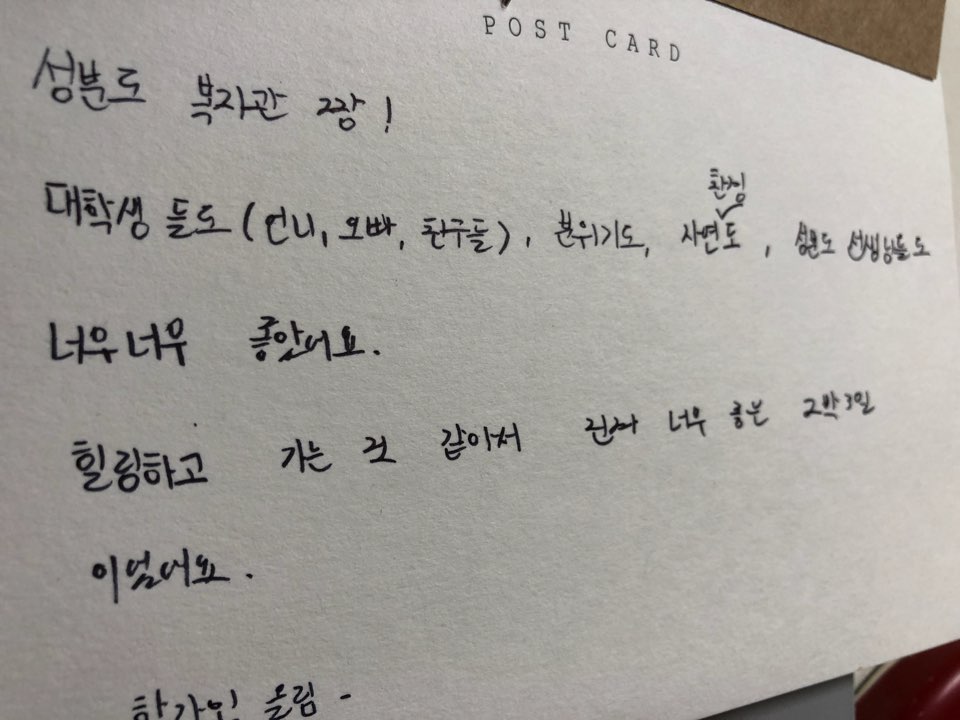 POST CARD
성분도 복지관 짱!
대학생 들도 (언니, 오빠, 친구들), 분위기도, 자연환경도, 성분도 선생님들도
너무너무 좋았어요.
힐링하고 가는 것 같아서 진짜 너무 좋은 2박3일
이었어요.
올림 -